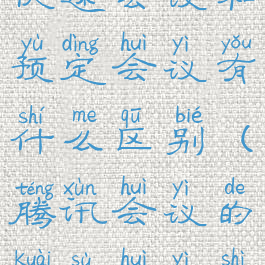 快速会议和
yù dìng huì yì yǒu
预定会议有
shí me qū bié
什么区别(
téng xùn huì yì de
腾讯会议的
kuài sù huì yì shì